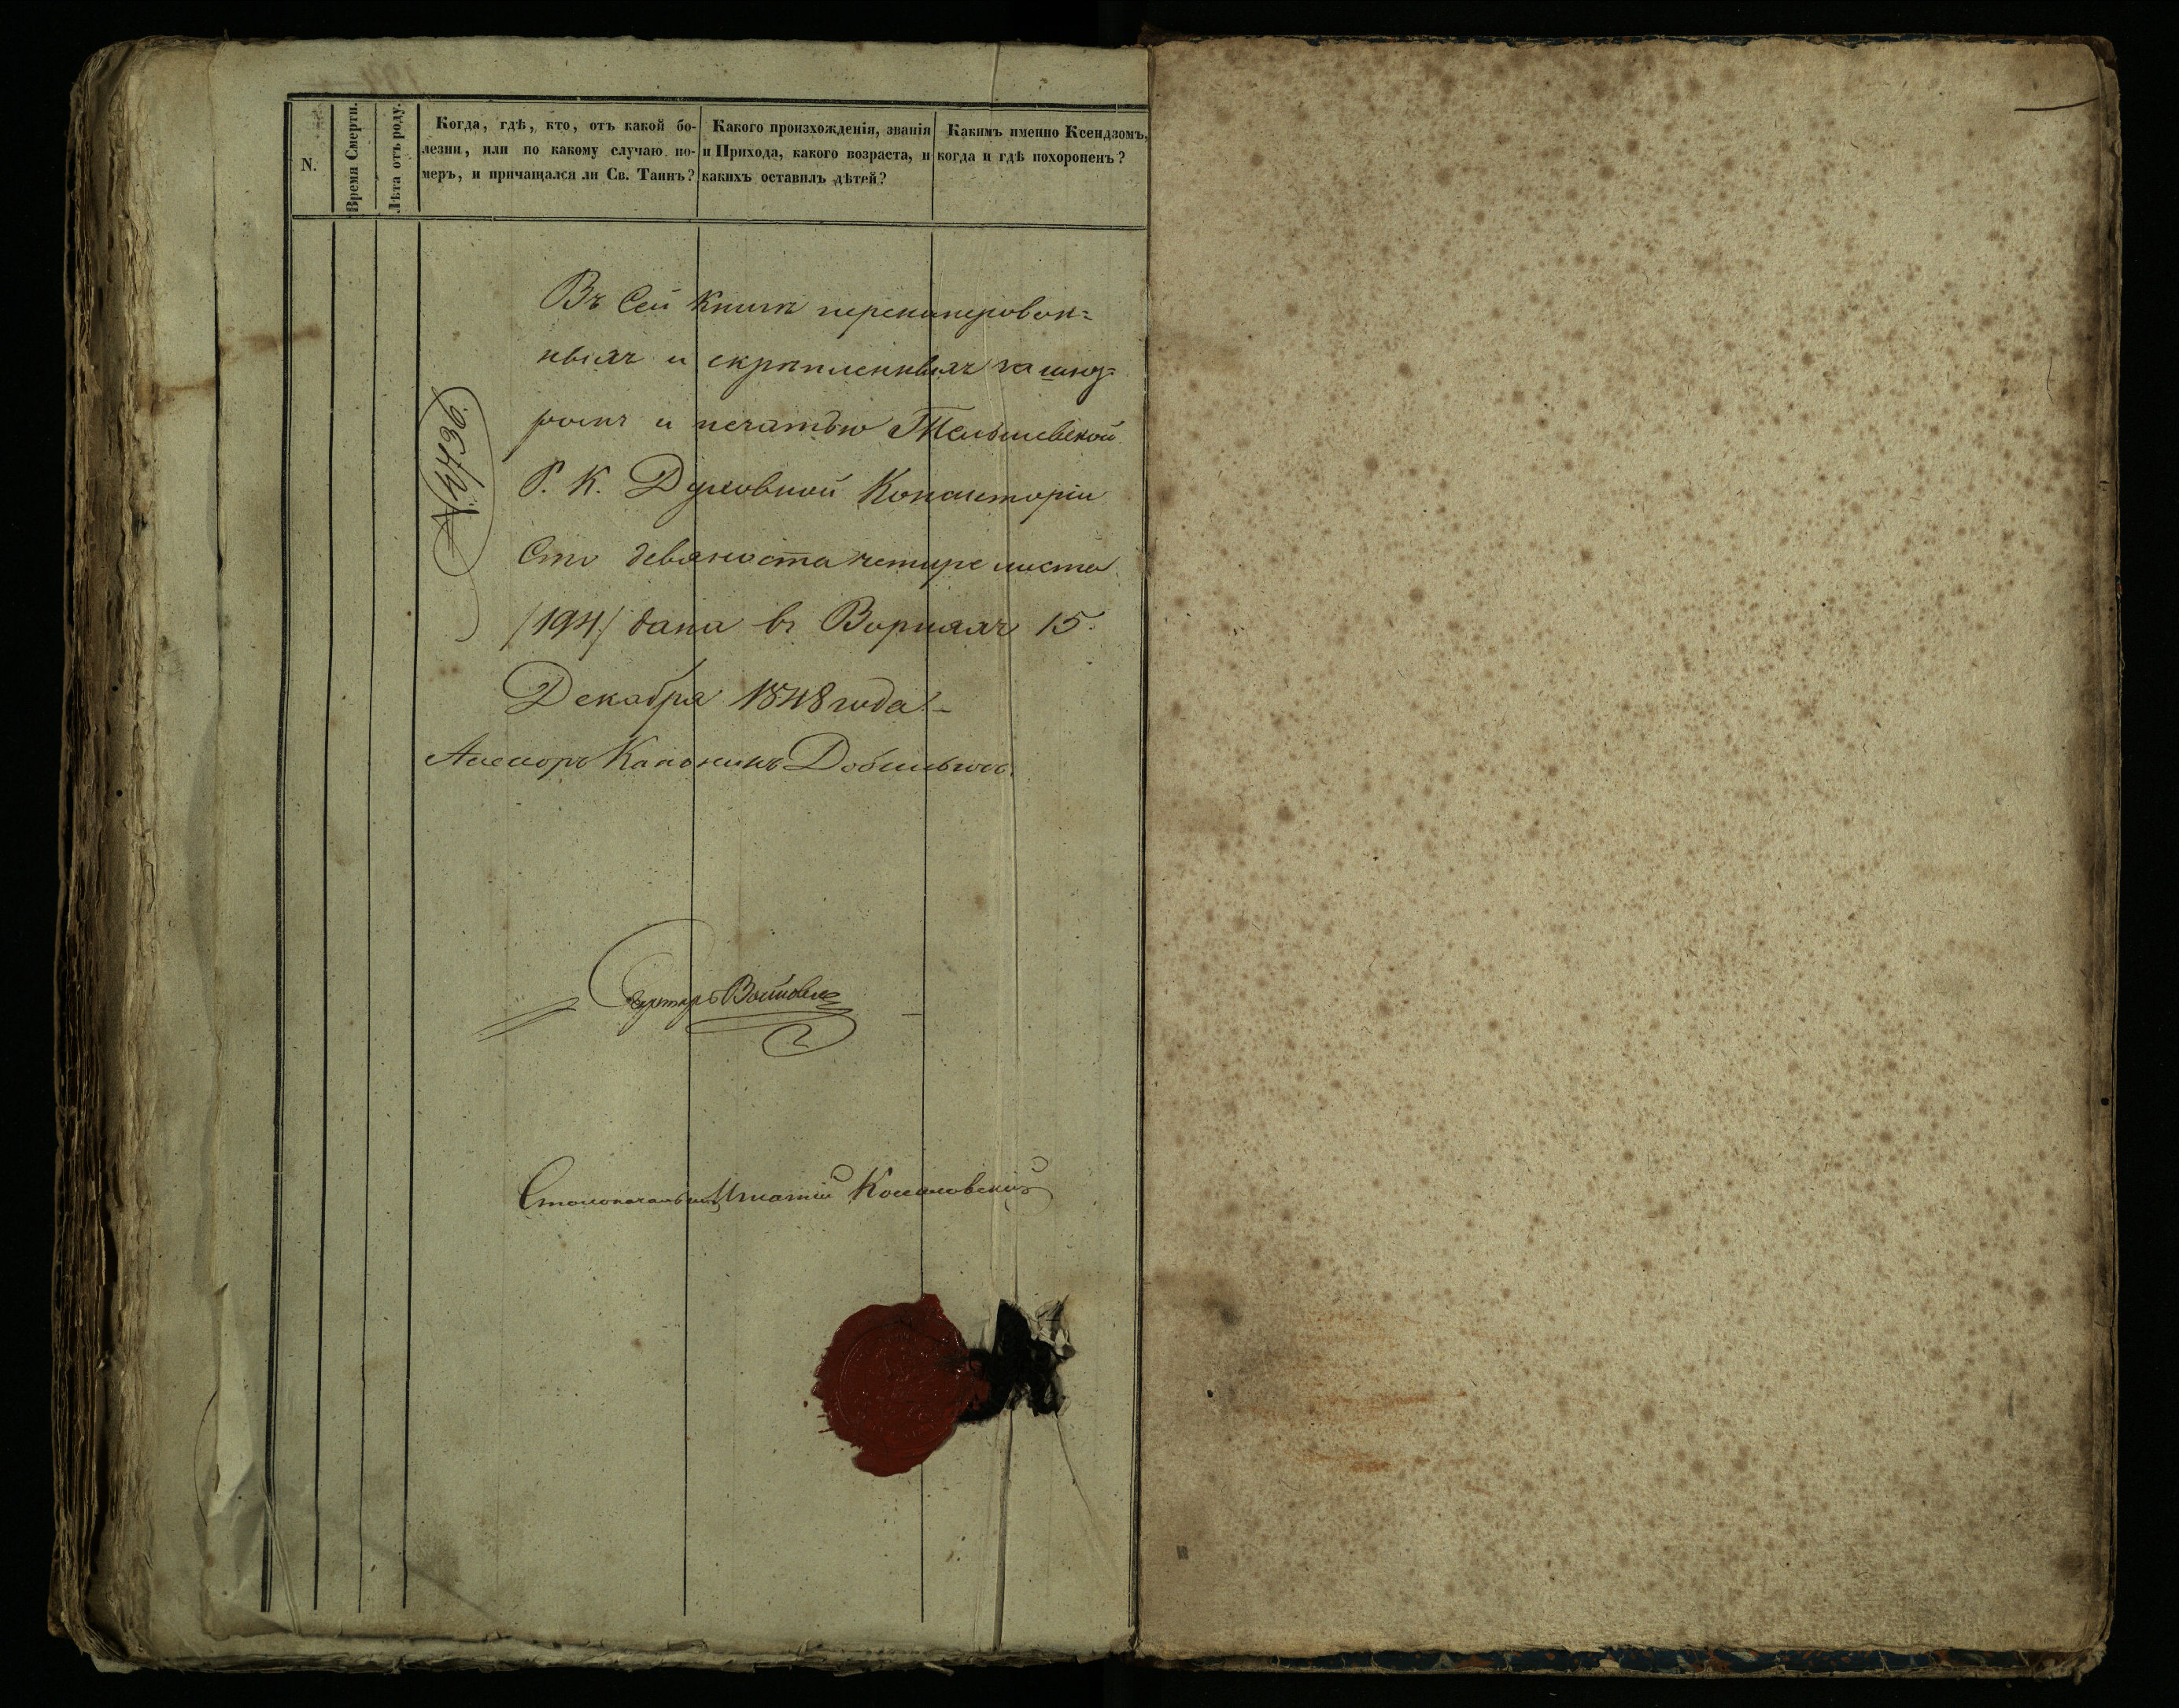 N.
Время Смерти.
Лѣта отъ роду.
Когда, гдѣ, кто, отъ какой бо-
лезни, или по какому случаю по-
меръ, и причащался ли Св. Таинъ?
Какого произхожденія, званія
и Прихода, какого возраста, и
какихъ оставилъ дѣтей?
Какимъ именно Ксендзомъ,
когда и гдѣ похороненъ?
N. 4736.
Въ Сей Книгѣ перенумерован=
ныхъ и скрѣпленныхъ за шну=
ромъ и печатью Тельшевской
Р. К. Духовной Консисторіи
Сто девяноста четыре листа
/194/ дана въ Ворняхъ 15
Декабря 1848 года.-
Асессоръ Каноникъ
Секретарь
Столоначальникъ Игнатій